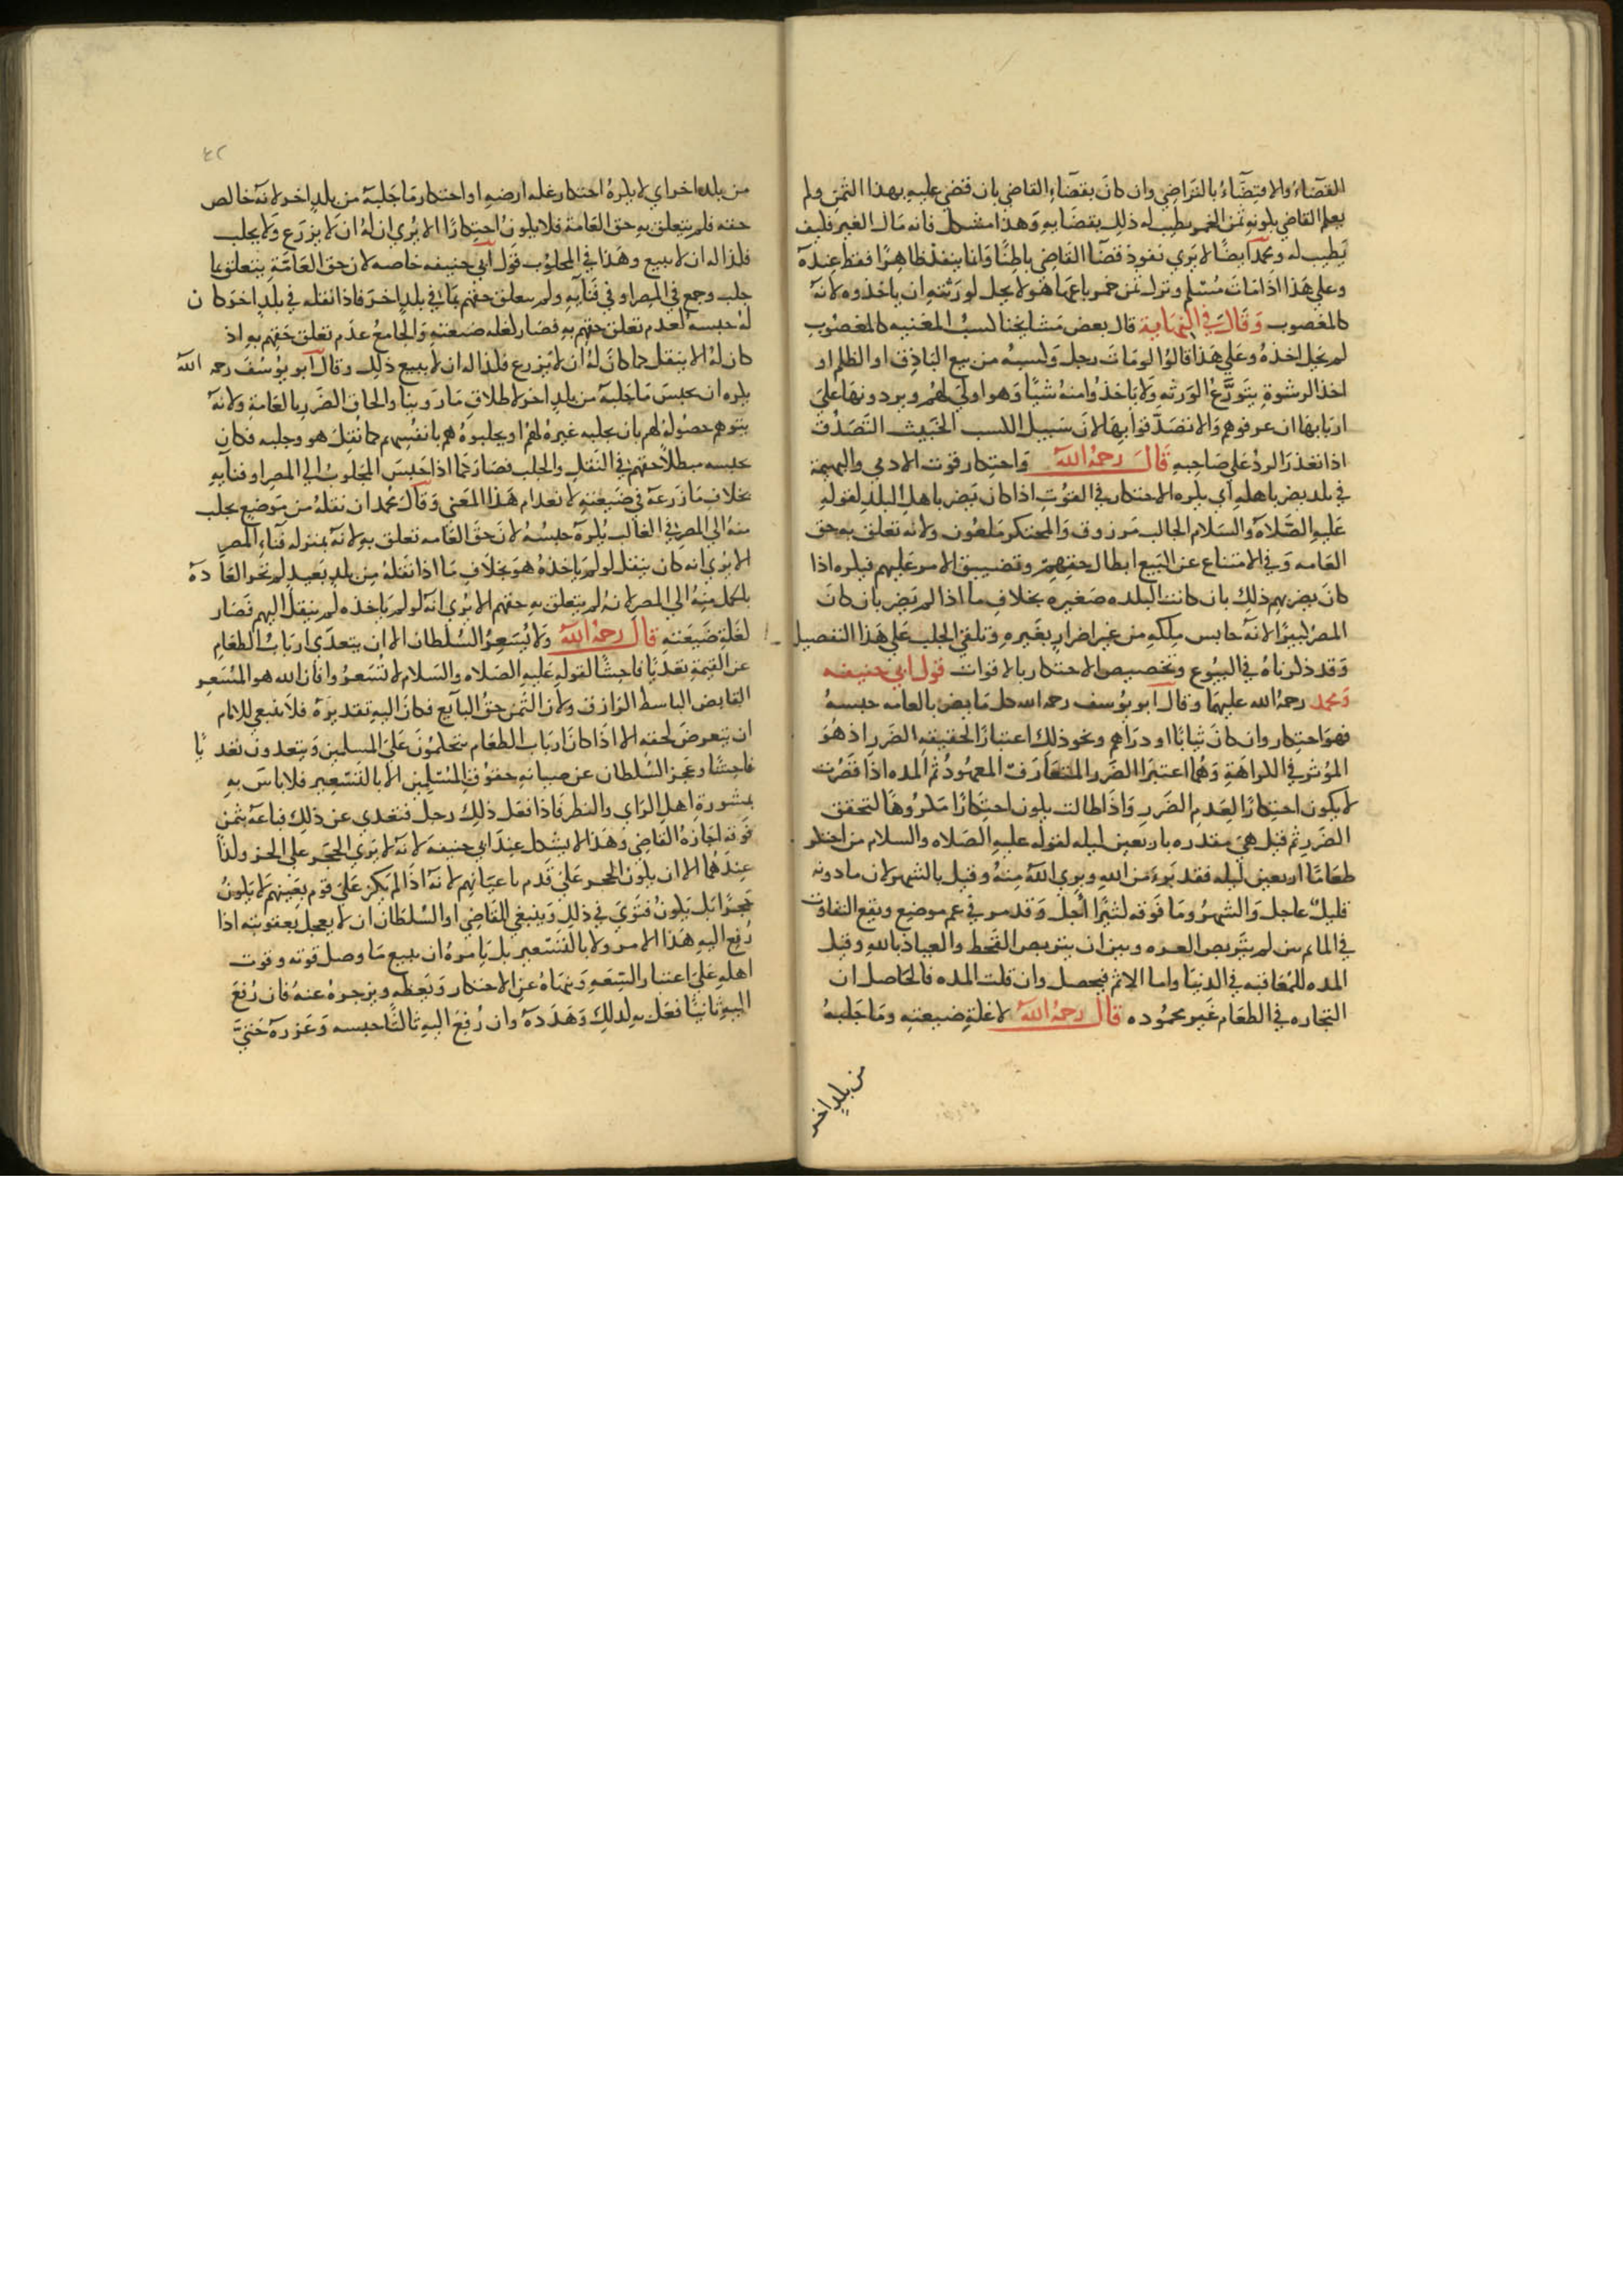 القضاء والاقتضاء بالتراضي وان كان بقضاء القاضي بان قضى عليه بهذا الثمن ولم
يعلم القاضي بكونه ثمن الخمر يطيب له ذلك بقضايه وهذا مشكل فانه مال الغير فكيف
يطيب له ومحمد ايضا لا يري نفوذ قضا القاضي باطنا وانما ينفذ ظاهرا فقط عنده
وعلي هذا اذا مات مسلم وترك ثمن خمر باعها هو لا يحل لورثته ان ياخذوه لانه
كالمغصوب وقال في النهاية قال بعض مشايخنا كسب المغنيه كالمغصوب
لم يحل اخذه وعلي هذا قالوا لو مات رجل وكسبه من بيع الباذق او الظلم او
اخذ الرشوة يتورع الورثه ولا ياخذوا منه شيا وهو اولي لهم ويردونها علي
اربابها ان عرفوهم والا تصدقوا بها لان سبيل الكسب الخبيث التصدق
اذا تعذر الرد علي صاحبه قال رحمه الله واحتكار قوت الادمي والبهيمة
في بلد يضر باهله اي يكره الاحتكار في القوت اذا كان يضر باهل البلد لقوله
عليه الصلاة والسلام الجالب مرزوق والمحتكر ملعون ولانه تعلق به حق
العامه وفي الامتناع عن البيع ابطال حقهم وتضييق الامر عليهم فيكره اذا
كان يضر بهم ذلك بان كانت البلده صغيره بخلاف ما اذا لم يضر بان كان
المصر كبيرا لانه حابس ملكه من غير اضرار بغيره وتلقي الجلب علي هذا التفصيل
وقد ذكرناه في البيوع وتخصيص الاحتكار بالاقوات قول ابي حنيفه
ومحمد رحمه الله عليهما وقال ابو يوسف رحمه الله كل ما يضر بالعامه حبسه
فهو احتكار وان كان ثيابا او دراهم ونحو ذلك اعتبارا لحقيقه الضرر اذ هو
الموثر في الكراهة وهما اعتبرا الضرر المتعارف المعهود ثم المده اذا قصرت
لا يكون احتكارا لعدم الضرر واذا طالت يكون احتكارا مكروها لتحقق
الضرر ثم قيل هي مقدره باربعين ليله لقوله عليه الصلاه والسلام من احتكر
طعاما اربعين ليله فقد بري من الله وبري الله منه وقيل بالشهر لان ما دونه
قليل عاجل والشهر وما فوقه كثيرا اجل وقد مر في غير موضع ويقع التفاوت
في الماثم بين لم يتربص العزه وبين ان يتربص القحط والعياذ بالله وقيل
المده للمعاقبه في الدنيا واما الاثم فيحصل وان قلت المده فالحاصل ان
التجاره في الطعام غير محموده قال رحمه الله لا غلة ضيعته وما جلبه
من بلد اخر
من بلد اخر اي لا يكره احتكار غله ارضه او احتكار ما جلبه من بلد اخر لانه خالص
حقه فلم يتعلق به حق العامة فلا يكون احتكارا الا يري ان له ان لا يزرع ولا يجلب
فكذا له ان لا يبيع وهذا في المجلوب قول ابي حنيفه خاصه لان حق العامة يتعلق بما
جلب وجمع في المصر او في فنايه ولم يتعلق حقهم بما في بلد اخر فاذا نقله في بلد اخر كان
له حبسه لعدم تعلق حقهم به فصار كغله ضيعته والجامع عدم تعلق حقهم به اذ
كان له الا ينقل كما كان له ان لا يزرع فكذا له ان لا يبيع ذلك وقال ابو يوسف رحمه الله
يكره ان يحبس ما جلبه من بلد اخر لاطلاق ما روينا والحاق الضرر بالعامة ولانه
يتوهم حصوله لهم بان يجلبه غيره لهم او يجلبوه هم بانفسهم كما نقل هو وجلبه فكان
بحبسه مبطلا حقهم في النقل والجلب فصار كما اذا حبس المجلوب الي المصر او فنايه
بخلاف ما زرعه في ضيعته لانعدام هذا المعني وقال محمد ان نقله من موضع يجلب
منه الي المصر في الغالب يكره حبسه لان حق العامه تعلق به لانه بمنزله فناء المصر
الا يري انه كان ينقل لو لم ياخذه هو بخلاف ما اذا نقله من بلد بعيد لم تجر العادة
بالحمل منه الي المصر لانه لم يتعلق به حقهم الا يري انه لو لم ياخذه لم ينقل اليهم فصار
كغلة ضيعته قال رحمه الله ولا يسعر السلطان الا ان يتعدي ارباب الطعام
عن القيمة تعديا فاحشا لقوله عليه الصلاه والسلام لا تسعروا فان الله هو المسعر
القابض الباسط الرازق ولان الثمن حق البايع فكان اليه تقديره فلا ينبغي للامام
ان يتعرض لحقه الا اذا كان ارباب الطعام يتحكمون علي المسلمين ويتعدون تعديا
فاحشا وعجز السلطان عن صيانه حقوق المسلمين الا بالتسعير فلا باس به
بمشورة اهل الراي والنظر فاذا فعل ذلك رجل فتعدي عن ذلك فباعه بثمن
فوقه اجازه القاضي وهذا لا يشكل عند ابي حنيفة لانه لا يري الحجر علي الحر ولذا
عندهما الا ان يكون الحجر علي قدم باعيانهم لانه اذا لم يكن علي قوم بعينهم لا يكون
حجرا بل يكون فتوي في ذلك وينبغي للقاضي او السلطان ان لا يعجل بعقوبته اذا
رفع اليه هذا الامر ولا بالتسعير بل يامره ان يبيع ما وصل قوته وقوت
اهله علي اعتبار السعه وينهاه عن الاحتكار ويعظه ويزجره عنه فان رفع
اليه ثانيا فعل به كذلك وهدده وان رفع اليه ثالثا حبسه وعزره حتي